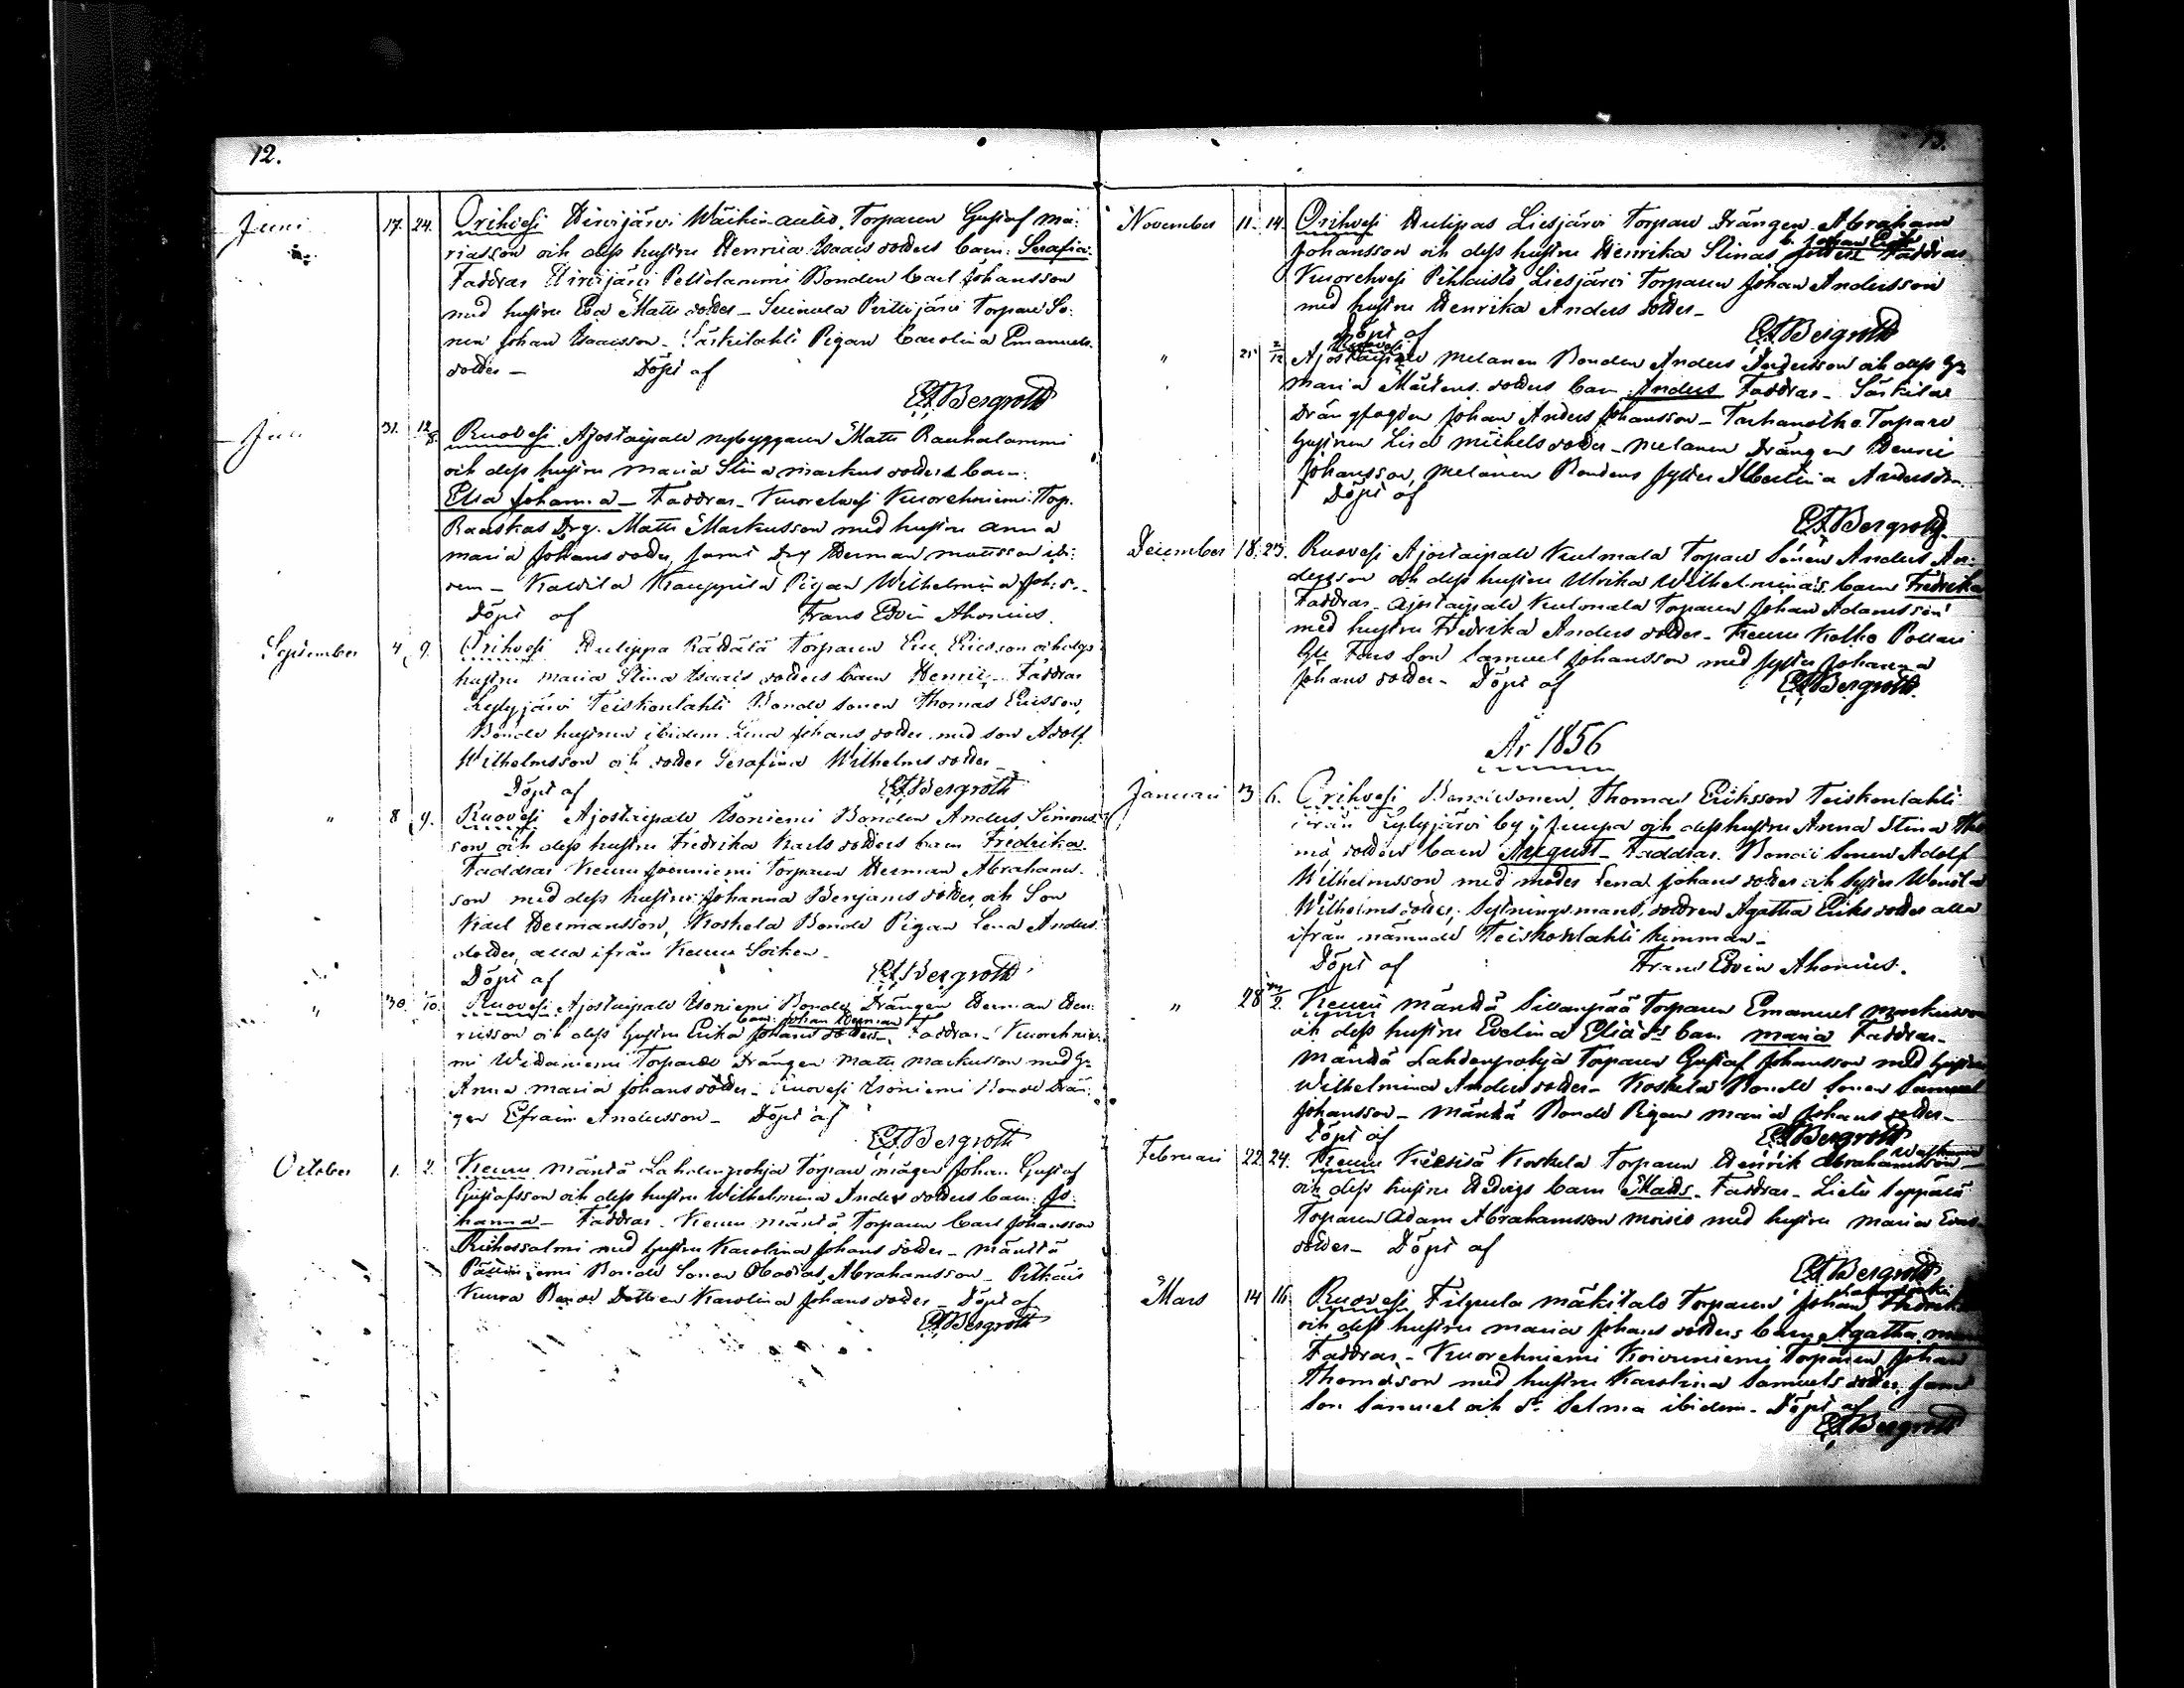 12.
Juni 17. 24. Orihvesi Hirvijärvi Wäihin-autio Torparen Gustaf Ma-
riasson och dess hustru Henrica Isaacs dotters barn: Serafia.
Faddrar Hirvijärvi Peltolammi Bonden Carl Johansson
med hustru Eva Matts dotter – Torpare So-
nen Johan Isaacsson – Särkilahti Pigan Carolina Emanuels
dotter – Döpt af
E.A. Bergroth
Juli 31. 12/8. Ruovesi Ajostaipale nybyggaren Matts Rauhalammi
och dess hustru Maria Stina Markus dotters barn:
Elsa Johanna – Faddrar – Kuorehvesi Kuorehniemi Torp.
Raaskas Drg. Matts Markusson med hustru Anna
Maria Johans dotter, samt Drg Herman Mattsson ibi-
dem – Kawila Kauppila Pigan Wilhelmina Joh. d.
Döpt af Frans Edvin Ahonius.
September 4. 9. Orihvesi Hulippa Räddälä Torparen Eric Ericsson och dess
hustru Maria Stina Isaacs dotters barn Henric – Faddrar
Lylyjärvi Teiskonlahti Bonde sonen Thomas Ericsson,
Bonde hustrun ibidem Lena Johans dotter med son Adolf
Wilhelmsson och dotter Serafina Wilhelms dotter
Döpt af E.A. Bergroth
" 8 9. Ruovesi Ajostaipale Isoniemi Bonden Anders Simons-
son och dess hustru Fredrika Karls dotters barn Fredrika.
Faddrar Keuru Torparen Herman Abrahams-
son med dess hustru Johanna Benjams dotter, och Son
Karl Hermansson, Koskela Bonde Pigan Lena Anders
dotter, alla ifrån Keuru Socken –
Döpt af E.A. Bergroth
" 30. Ruovesi Ajostaipale Isoniemi Bonde Drängen Herman Hen-
barn: Johan Herman
ricsson och dess hustru Erika Johans dotters – Faddrar – Kuorehnie-
mi Widaniemi Torpare Drängen Matts Markusson med H.
Anna Maria Johans dotter – Ruovesi Isoniemi Bonde Drän-
gen Efraim Andersson – Döpt af
E.A. Bergroth
October 1. 2. Keuru Mänttä Lahdenpohja Torpare mågen Johan Gustaf
Gustafsson och dess hustru Wilhelmina Anders dotters barn: Jo-
hanna – Faddrar – Keuru Mänttä Torparen Carl Johansson
Riihosalmi med hustru Karolina Johans dotter – Mänttä
Bonde Sonen Obadias Abrahamsson –
Bonde Dottren Karolina Johans dotter – Döpt af
E.A. Bergroth
13.
November 11. 14. Orihvesi Hulipas Liesjärvi Torpare Drängen Abraham
Johansson och dess hustru Henrika Stinas Faddrar
Kuorehvesi Pihlaisto Liesjärvi Torparen Johan Andersson
med hustru Henrika Anders dotter –
Döpt af E.A. Bergroth
Ruovesi
" 25 2/12 Ajostaipale Melanen Bonden Anders Andersson och dess H.
Maria Mårtens dotters barn Anders Faddrar – Särkilax
Drängfogden Johan Anders Johansson – Torpare
hustrun Lisa Michels dotter – Melanen Drängen Henric
Johansson, Melanen Bondens syster Albertina Andersdr.
Döpt af
E.A. Bergroth
December 18. 23. Ruovesi Ajostaipale Kulmala Torpare Sonen Anders An-
dersson och dess hustru Ulrika Wilhelminas barn Fredrika
Faddrar – Ajostaipale Kulmala Torparen Johan Adamsson
med hustru Fredrika Anders dotter – Keuru Kolho Pollari
Son Samuel Johansson med syster Johanna
Johans dotter – Döpt af E.A. Bergroth.
År 1856
Januari 3 6. Orihvesi Bondesonen, Thomas Eriksson Teiskonlahti
ifrån Lylyjärvi by och dess hustru Anna Stina
dotters barn August – Faddrar. Bonde Sonen Adolf
Wilhelmsson med moder Lena Johans dotter och syster Wendla
Wilhelms dotter; Sytningsmans dottren Agatha Eriks dotter alla
ifrån nämnde Teiskonlahti hemman –
Döpt af Frans Edvin Ahonius.
" 28 Keuru Mänttä Sillanpää Torparen Emanuel Markusson
och dess hustru Evelina Elias dr barn Maria Faddrar –
Mänttä Lahdenpohja Torparen Gustaf Johansson med hustru
Wilhelmina Anders dotter – Koskela Bonde Sonen Samuel
Johansson – Mänttä Bonde Pigan Maria Johans dotter –
Döpt af E.A. Bergroth
Februari 22 24. Keuru Koskela Torparen Henrik Abrahamsson
och dess hustru Hedvigs barn Matts – Faddrar – Seppälä
Torparen Adam Abrahamsson Moisio med hustru Maria
dotter – Döpt af
E.A. Bergroth
Mars 14 16 Ruovesi Filpula Mäkitalo Torparen Johan
och dess hustru Maria Johans dotters barn Agatha
Faddrar – Kuorehniemi Koivuniemi Torparen Johan
Thomasson med hustru Karolina Samuels dotter, samt
Son Samuel och dr Selma ibidem – Döpt af
E.A. Bergroth